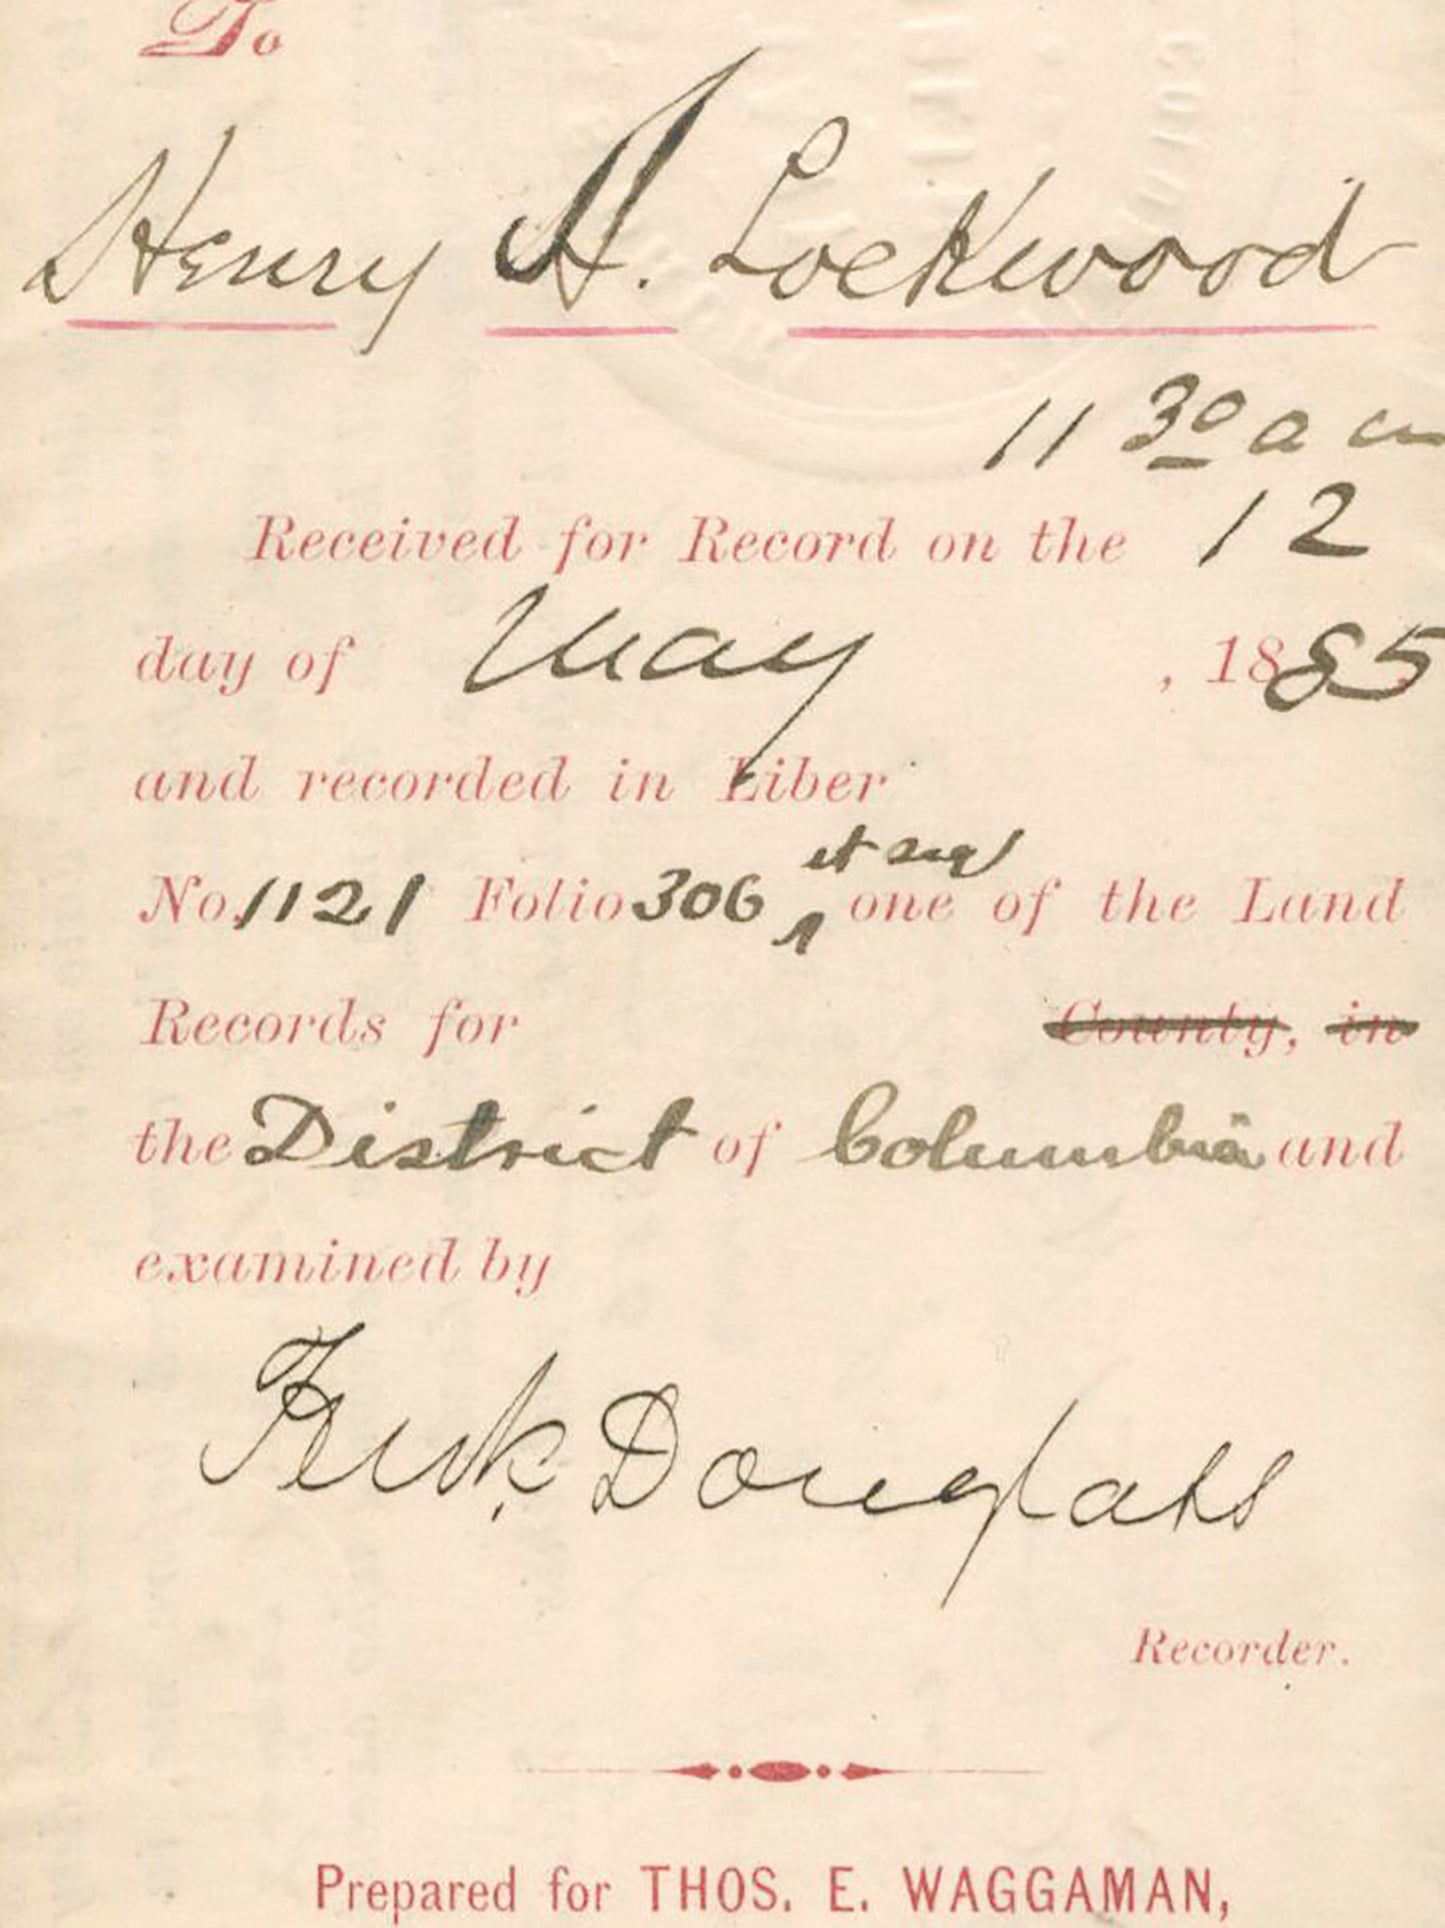 To
Henry H. Lockwood
11 30 a m
Received for Record on the 12
day of May, 1885
and recorded in Liber
No. 1121 Folio 306 et seq one of the Land
Records for County, in
the District of Columbia and
examined by
Fredk Douglass
Recorder.
Prepared for THOS. E. WAGGAMAN,